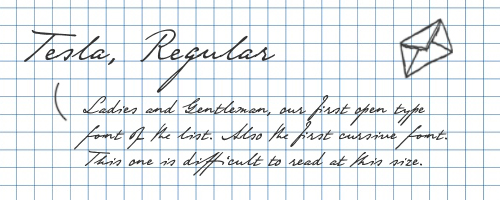 Tesla, Regular
Ladies and Gentleman, our first open type
font of the list. Also the first cursive font.
This one is difficult to read at this size.